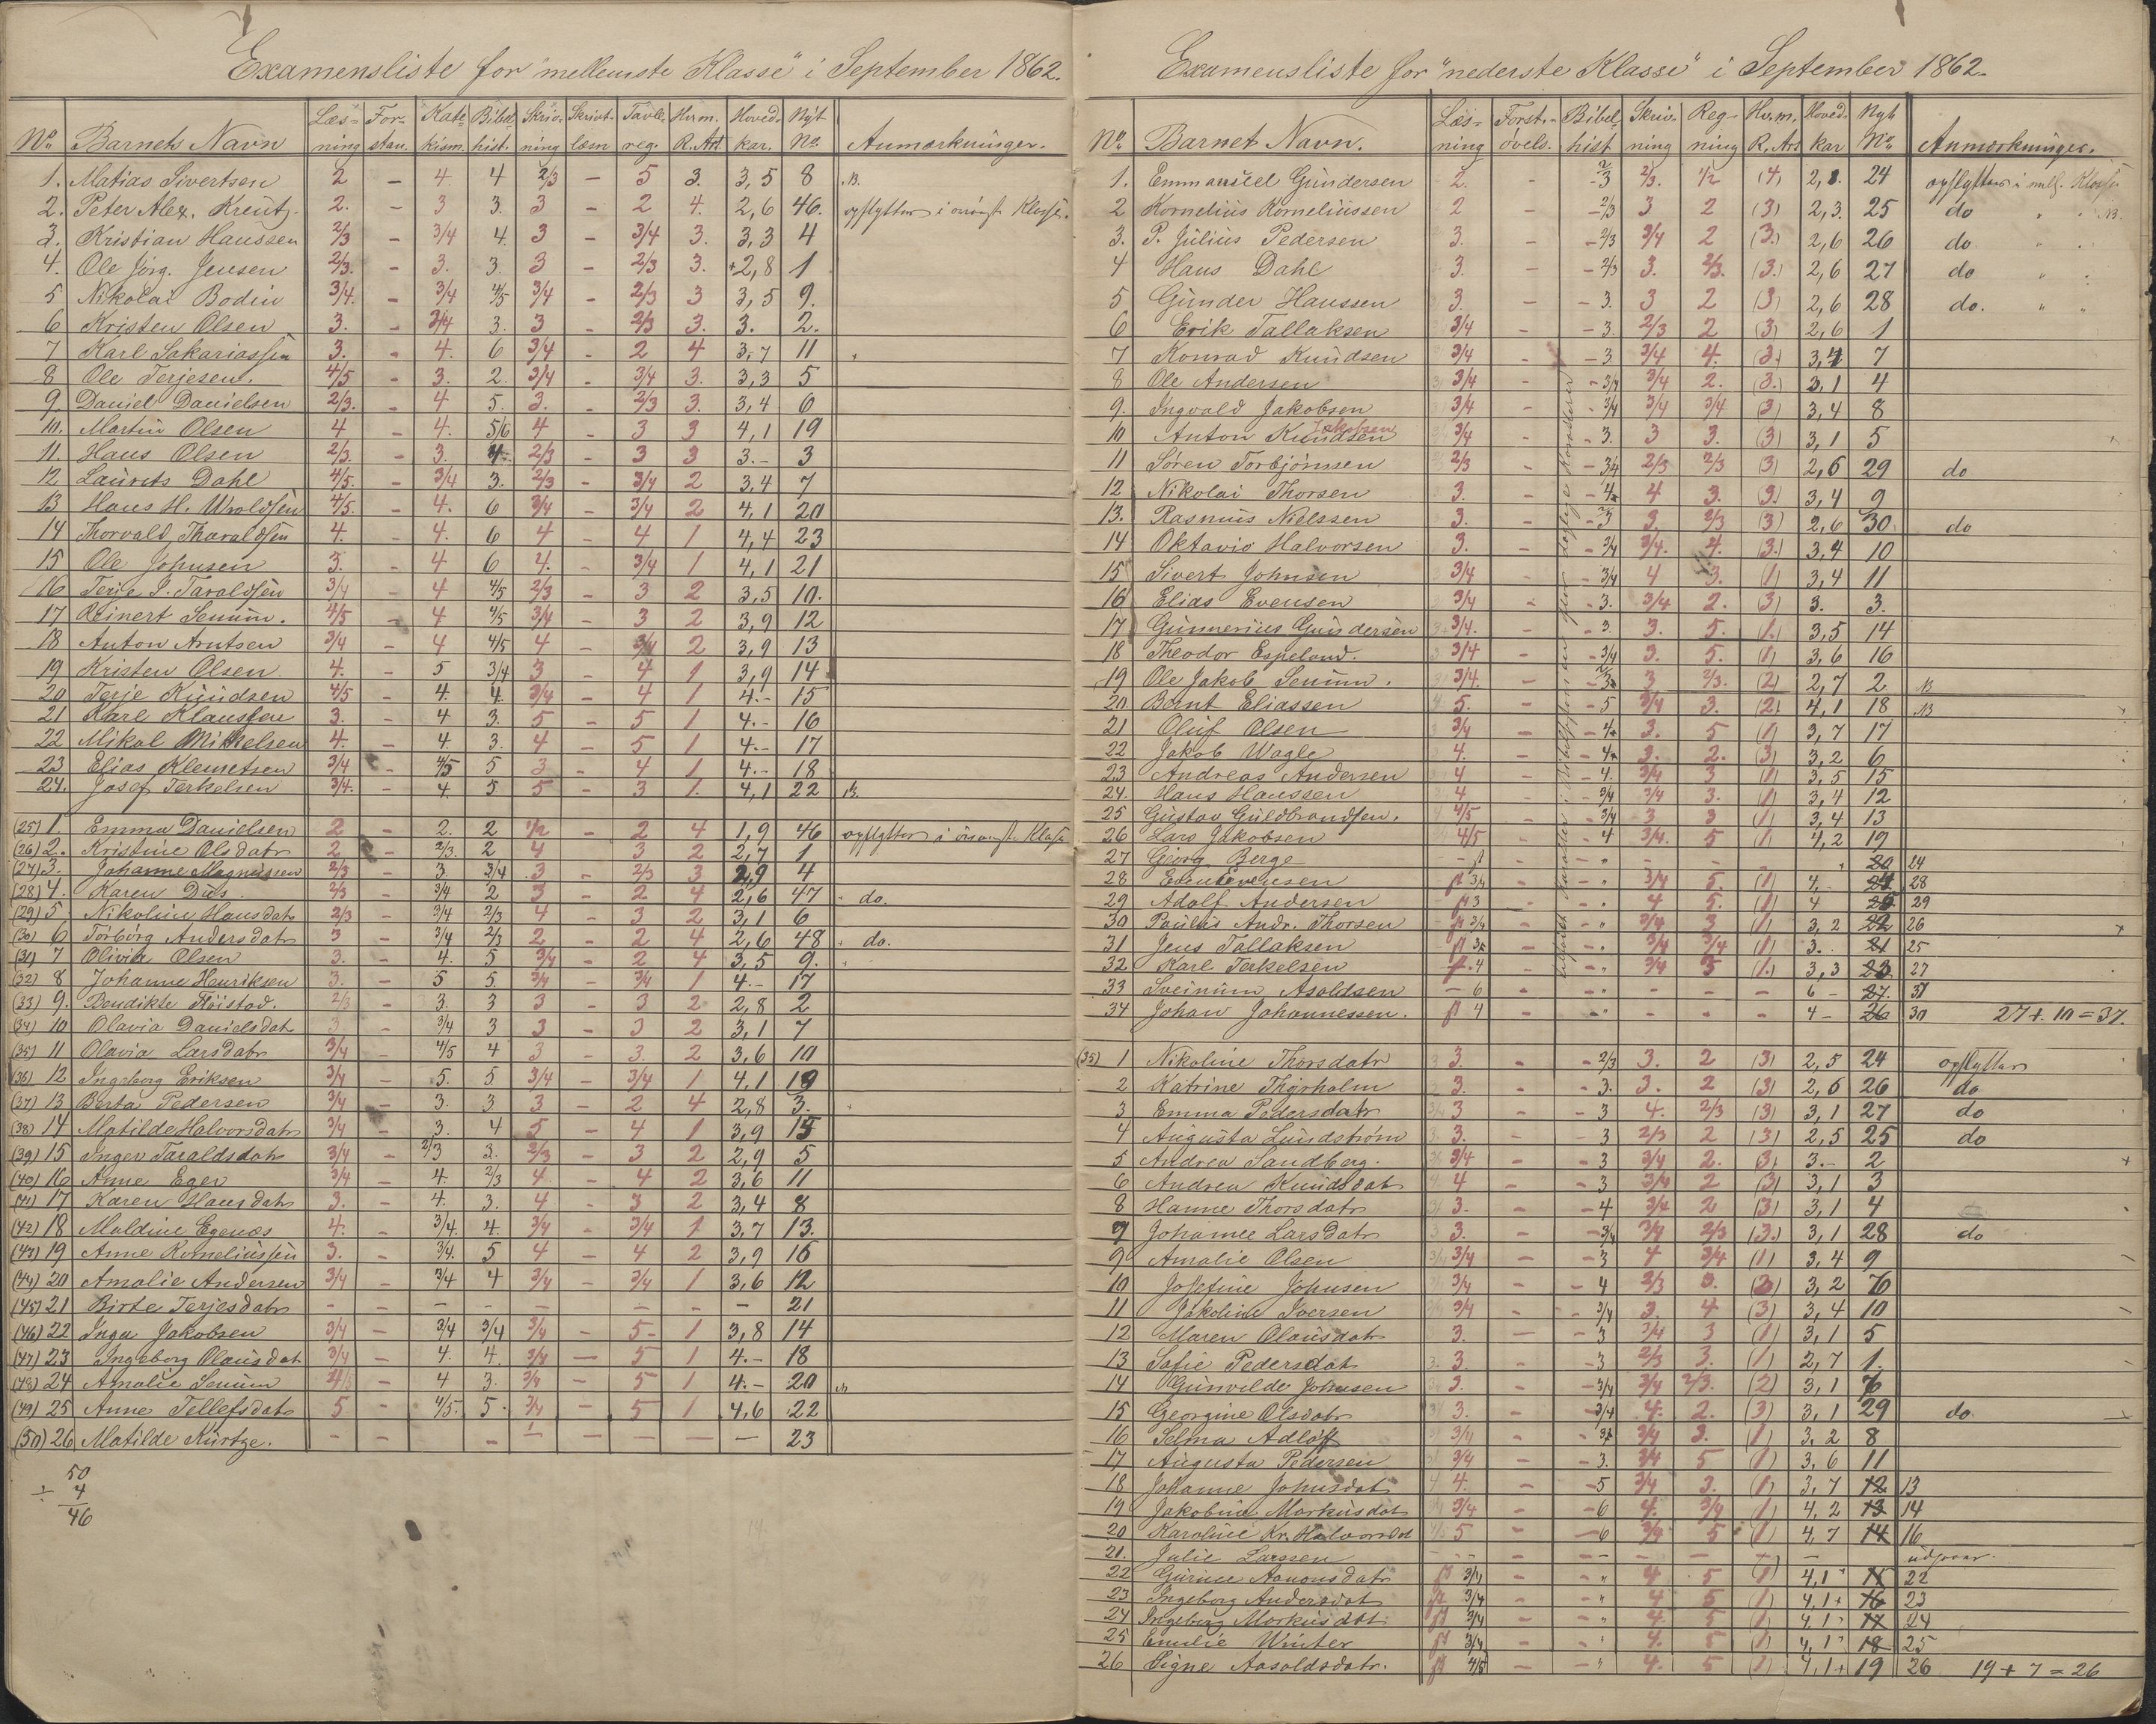 Examensliste for "mellemste Klasse" i September 1862.
No. Barnets Navn Læs=ning For=stan. Kate=kism. Bibel=hist. Skriv=ning Skrivt.læsn Tavle=reg. Hvm. R. Art Hoved=kar. Nyt No. Anmærkninger.
1. Matias Sivertsen 2 – 4. 4 2/3 – 5 3. 3,5 8
2. Peter Alex. Kreutz. 2. – 3 3. 3 – 2 4. 2,6 46. opflyttes i øverste Klasse.
3. Kristian Hanssen 2/3 – 3/4 4. 3 – 3/4 3. 3,3 4
4. Ole Jörg. Jensen 2/3. – 3. 3. 3 – 2/3 3. 2,8 1
5 Nikolai Bodin 3/4. – 3/4 4/5 3/4 – 2/3 3 3,5 9.
6 Kristen Olsen 3. – 3/4 3. 3 – 2/3 3. 3. 2.
7 Karl Sakariassen 3. – 4. 6 3/4 – 2 4 3,7 11
8 Ole Terjesen. 4/5 – 3. 2. 3/4 – 3/4 3. 3,3 5
9. Daniel Danielsen 2/3. – 4 5. 3. – 2/3 3. 3,4 6
10. Martin Olsen 4 – 4. 5/6 4 – 3 3 4,1 19
11. Hans Olsen 2/3. – 3. 4 2/3 – 3 3 3.– 3
12 Laurits Dahl 4/5. – 3/4 3. 2/3 – 3/4 2 3,4 7
13 Hans H. Wroldsen 4/5. – 4. 6 3/4 – 3/4 2 4,1 20
14 Thorvald Tharaldsen 4. – 4. 6 4 – 4 1 4,4 23
15 Ole Johnsen 3. – 4 6 4. – 3/4 1 4,1 21
16 Terje I. Taraldsen 3/4 – 4 4/5 2/3 – 3 2 3,5 10.
17 Reinert Senum. 4/5 – 4 4/5 3/4 – 3 2 3,9 12
18 Anton Arntsen 3/4 – 4 4/5 4 – 3/4 2 3,9 13
19 Kristen Olsen 4. – 5 3/4 3 – 4 1 3,9 14
20 Terje Knudsen 4/5 – 4. 4. 3/4 – 4 1 4.– 15
21 Karl Klausen 3. – 4 3. 5 – 5 1 4.– 16
22 Mikal Mikkelsen 4. – 4. 3. 4 – 5 1 4.– 17
23 Elias Klemetsen 3/4 – 4/5 5 3 – 4 1 4.– 18
24. Josef Terkelsen 3/4. – 4. 5 5 – 3 1. 4,1 22
(25) 1. Emma Danielsen 2 – 2. 2 1/2 – 2 4 1,9 46 opflyttes i överste Klasse
(26) 2. Kristine Olsdatr 2 2/3. 2 4 3 2 2,7 1
(27) 3. Johanne Magnussen 2/3 – 3. 3/4 3 – 2/3 3 2,9 4
(28) 4. Karen Dus 2/3 – 3/4 2 3 – 2 4 2,6 47 do.
(29) 5 Nikoline Hansdatr 2/3 – 3/4 2/3 4 – 3 2 3,1 6
(30) 6 Torborg Andersdatr 3 – 3/4 2/3 2 – 2 4 2,6 48 do.
(31) 7 Olivia Olsen 3. – 4. 5 3/4 – 2 4 3,5 9.
(32) 8 Johanne Henriksen 3. – 5 5. 3/4 – 3/4 1 4.– 17
(33) 9. Bendikte Röistad. 2/3 – 3. 3 3 – 3 2 2,8 2
(34) 10 Olavia Danielsdatr 3 – 3/4 3 3 – 3 2 3,1 7
(35) 11 Olavia Larsdatr 3/4 – 4/5 4 3 – 3. 2 3,6 10
(36) 12 Ingeborg Eriksen 3/4 – 5. 5 3/4 – 3/4 1 4,1 19
(37) 13 Berta Pedersen 3/4 – 3. 3 3 – 2 4 2,8 3.
(38) 14 Matilde Halvorsdatr 3/4 – 3. 4 5 – 4 1 3,9 15
(39) 15 Inger Taraldsdatr 3/4 – 2/3 3. 2/3 – 3 2 2,9 5
(40) 16 Anne Eger 3/4 – 4. 2/3 4 – 4 2 3,6 11
(41) 17 Karen Hansdatr 3. – 4. 3. 4 – 3 2 3,4 8
(42) 18 Maldine Egenæs 4. – 3/4. 4. 3/4 – 3/4 1 3,7 13.
(43) 19 Anne Korneliussen 3. – 3/4. 5 4 – 4 2 3,9 16
(44) 20 Amalie Andersen 3/4 – 3/4 4 3/4 – 3/4 1 3,6 12
(45) 21 Birte Terjesdatr – – – – – – – – 21
(46) 22 Inga Jakobsen 3/4 – 3/4 3/4 3/4 – 5– 1 3,8 14
(47) 23 Ingeborg Olausdat 3/4 – 4. 4 3/4 – 5 1 4.– 18
(48) 24 Amalie Senum 4/5 – 4 3. 3/4 – 5 1 4.– 20
(49) 25 Anne Tellefsdatr 5 – 4/5. 5. 3/4 – 5 1 4,6 22
(50) 26 Matilde Kürtze. – – – – – – – – 23
50
÷ 4
46
Examensliste for "nederste Klasse" i September 1862.
No. Barnets Navn. Läs=ning Forst.=övels. Bibel=hist Skriv=ning Reg=ning Hv.m. R. Art Hoved=kar Nyt No. Anmærkninger.
1. Emmanuel Gundersen 2. – 3 2/3. 1/2 (4) 2,1. 24 opflyttes i mell. Klasse
2 Kornelius Korneliussen 2 – 2/3 3 2 (3) 2,3. 25 do " "
3. P. Julius Pedersen 3. – 2/3 3/4 2 (3.) 2,6 26 do "
4 Hans Dahl 3. – 2/3 3. 2/3. (3.) 2,6 27 do "
5 Gunder Hanssen 3. – 3. 3 2 (3) 2,6 28 do. " "
6 Erik Tallaksen 3/4 – 3. 2/3 2 (3) 2,6 1
7 Konrad Knudsen 3/4 – 3. 3/4 4. (3) 3,4 7
8 Ole Andersen 3/4 – 3/4 3/4 2. (3.) 3,1 4
9. Ingvald Jakobsen 3/4 – 3/4 3/4 3/4 (3) 3,4 8
Jakobsen
10 Anton Knudsen 3/4 – 3. 3 3. (3) 3,1 5
11 Sören Torbjörnsen 2/3 – 3/4 2/3 2/3 (3) 2,6 29 do
12 Nikolai Thorsen 3. – 4 4 3. (3.) 3,4 9
13. Rasmus Nielssen 3. – 3 3. 2/3 (3) 2,6 30 do
14 Oktavio Halvorsen 3. – 3/4 3/4. 4. (3.) 3,4 10
15 Sivert Johnsen 3/4 – 3/4 4 3. (1) 3,4 11
16 Elias Evensen 3/4 – 3. 3/4 2. (3) 3. 3.
17 Gunnerius Gundersen 3/4. – 3. 3. 5. (1.) 3,5 14
18 Theodor Espeland. 3/4 – 3/4 3. 5. (1) 3,6 16
19 Ole Jakob Senum. 3/4. – 3 3 2/3. (2) 2,7 2
20. Bernt Eliassen 5. – 5 3/4 3. (2) 4,1 18
21 Oluf Olsen 3/4 – 4 3. 5 (1) 3,7 17
22 Jakob Wagle 4. – 4 3. 2. (3) 3,2 6
23 Andreas Andersen 4 – 4. 3/4 3 (1) 3,5 15
24. Hans Hanssen 4 – 3/4 3/4 3. (1) 3,4 12
25 Gustav Guldbrandsen. 4/5 – 3/4 3 3 (1) 3,4 13
26 Lars Jakobsen 4/5 – 4 3/4. 5 (1) 4,2 19
27 Georg Berge – – " – – 20 24
28 Even Evensen 3/4 – " 3/4 5. (1) 4.– 28
29 Adolf Andersen 3 – " 4 5. (1) 4 29
30 Paulus Andr. Thorsen 3/4 – " 3/4 3 (1) 3,2 22 26
31 Jens Tallaksen – " 3/4 3/4 (1) 3. 21 25
32 Karl Terkelsen 4 – " 3/4 5 (1.) 3,3 23 27
33 Sveinum Asoldsen – 6 – " – – – 6 – 27. 31
34 Johan Johannessen. 4 – " – – – 4 – 26 30 27 + 10 = 37.
(35) 1 Nikoline Thorsdatr 3. – 2/3 3. 2 (3) 2,5 24 opflyttes
2 Katrine Thyrholm 3. – 3. 3. 2 (3) 2,6 26 do
3 Emma Pedersdatr 3 – 3 4. 2/3 (3) 3,1 27 do
4 Augusta Lundström 3. – 3 2/3 2 (3) 2,5 25 do
5 Andrea Sandberg. 3/4 – 3 3/4 2. (3) 3.– 2
6 Andrea Knudsdatr 4 – 3 3/4 2 (3) 3,1 3
8 Hanne Thorsdatr 3. – 4 3/4 2 (3) 3,1 4
7 Johanne Larsdatr 3. – 3/4 3/4 2/3 (3.) 3,1 28 do
9 Amalie Olsen 3/4 – 3 4 3/4 (1) 3,4 9
10 Josefine Johnsen 3/4 – 4 2/3 3. (3) 3,2 6
11 Jakoline Iversen 3/4 – 3/4 3. 4 (3) 3,4 10
12 Maren Olausdatr 3. – 3 3/4 3 (1) 3,1 5
13 Sofie Pedersdat 3. – 3 2/3 3. (1) 2,7 1.
14 Gunvelde Johnsen 3. – 3/4 3/4 2/3. (2) 3,1 7
15 Georgine Olsdatr 3. – 3/4 4. 2. (3) 3,1 29 do.
16 Selma Adloff 3/4 – 3/4 3/4 3. (1) 3,2 8
17 Augusta Pedersen 3/4 – 3. 3/4 5 (1) 3,6 11
18 Johanne Johnsdatr 4. – 5 3/4 3. (1) 3,7 12 13
19 Jakobine Markusdat 3/4 – 6 4. 3/4 (1) 4,2 13 14
20 Karoline Kr. Halvorsdat 5 – 6 3/4 5 (1) 4,7 14 16
21. Julie Larssen – – – – – – udgaar.
22 Gurine Aanonsdatr 3/4 – " 4 5 (1) 4,1 15 22
23 Ingeborg Andersdat 3/4 – " 4 5 (1) 4,1 16 23
24 Ingeborg Markusdat. 3/4 – " 4. 5 (1) 4,1 17 24
25 Emilie Winter 3/4 – " 4. 5 (1) 4,1 18 25
26 Signe Aasoldsdatr. 4/5 – " 4. 5 (1) 4,1 19 26 19 + 7 = 26